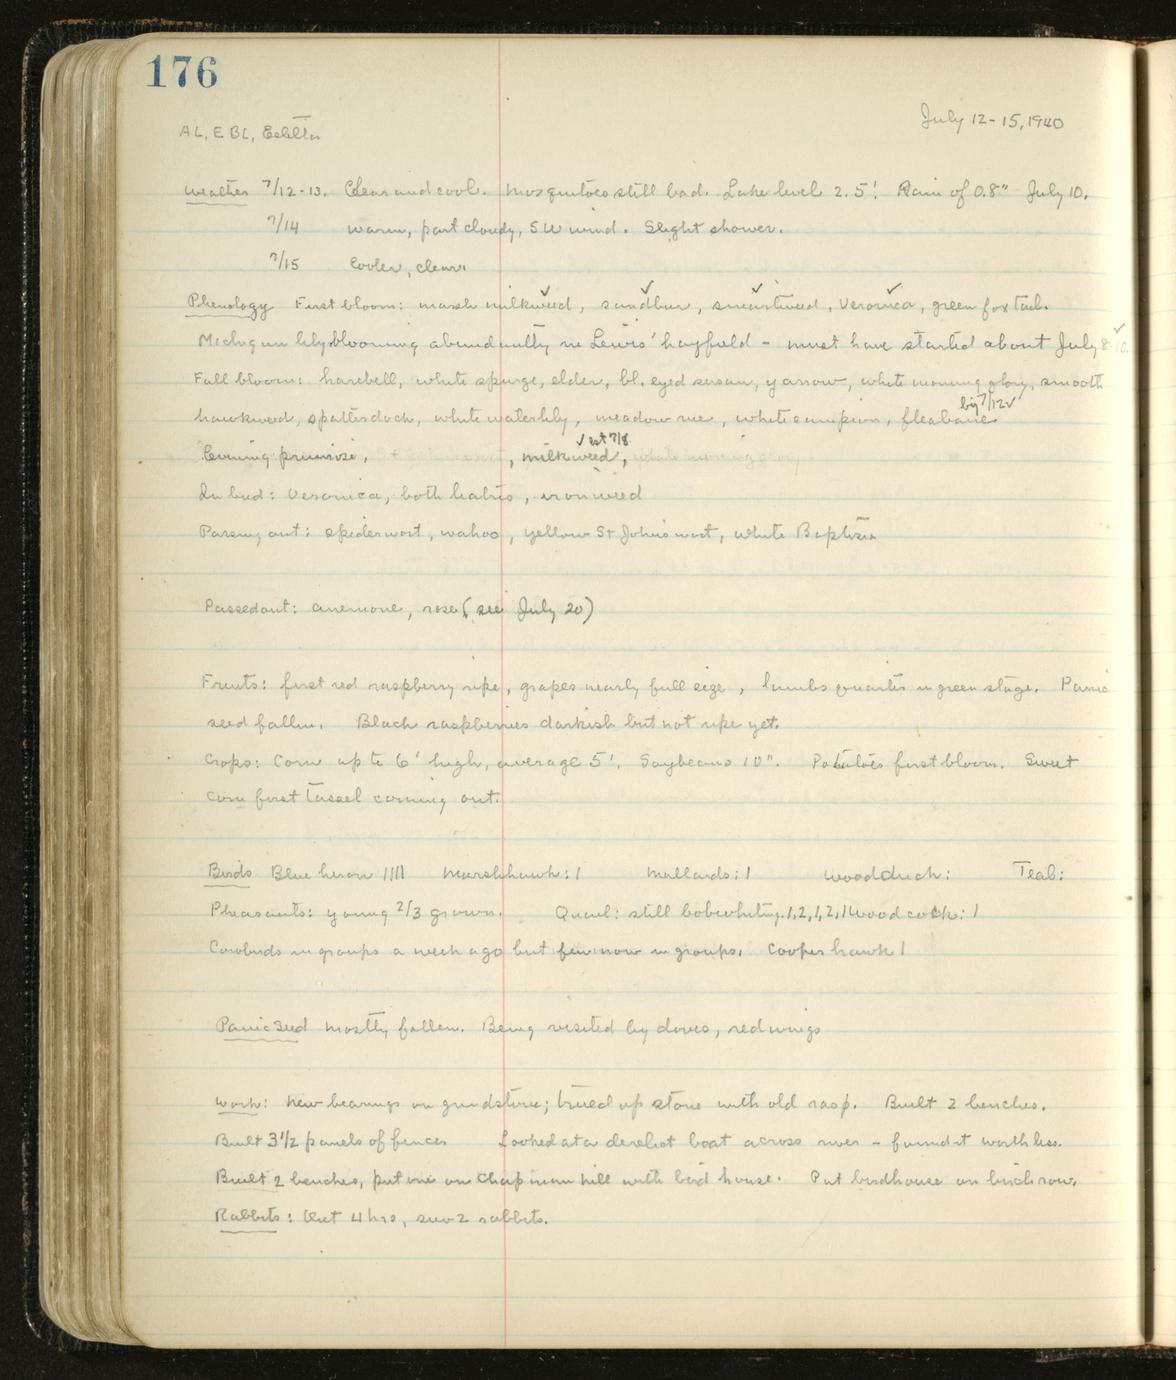 176
July 12-15, 1940
AL, EBL, Estella
Weather 7/12-13. Clear and cool. Mosquitoes still bad. Lake level 2.5'. Rain of 0.8" July 10.
7/14 Warm, part cloudy, SW wind. Slight shower.
7/15 Cooler, clear.
Phenology First bloom: marsh milkweed, sandbur, smartweed, Veronica, green foxtail.
Michigan lily blooming abundantly in Lewis' hayfield - must have started about July 8-10.
Full bloom: harebell, white spurge, elder, bl. eyed susan, yarrow, white morning glory, smooth
big 7/12
hawkweed, spatterdock, white waterlily, meadow rue, white campion, fleabane
est 7/8
Evening primrose, , milkweed, white morning glory
In bud: Veronica, both liatris, ironweed
Passing out: spiderwort, wahoo, yellow St Johnswort, white Baptisia
Passed out: anemone, rose (see July 20)
Fruits: first red raspberry ripe, grapes nearly full size, lambs quarter in green stage. Panic
seed fallen. Black raspberries darkish but not ripe yet.
Crops: Corn up to 6' high, average 5'. Soybeans 10". Potatoes first bloom. Sweet
corn first tassel coming out.
Birds Blue heron 1111 Marsh hawk: 1 Mallards: 1 Woodduck: Teal:
Pheasants: young 2/3 grown. Quail: still bobwhiting. 1,2,1,2,1 Woodcock: 1
Cowbirds in groups a week ago but few now in groups. Cooper hawk 1
Panic Seed mostly fallen. Being visited by doves, redwings
Work: New bearings on grindstone; trued up stone with old rasp. Built 2 benches.
Built 3 1/2 panels of fence. Looked at a derelict boat across river - found it worthless.
Built 2 benches, put one on Chapman hill with bird house. Put birdhouse on birch row.
Rabbits: Out 4 hrs, saw 2 rabbits.